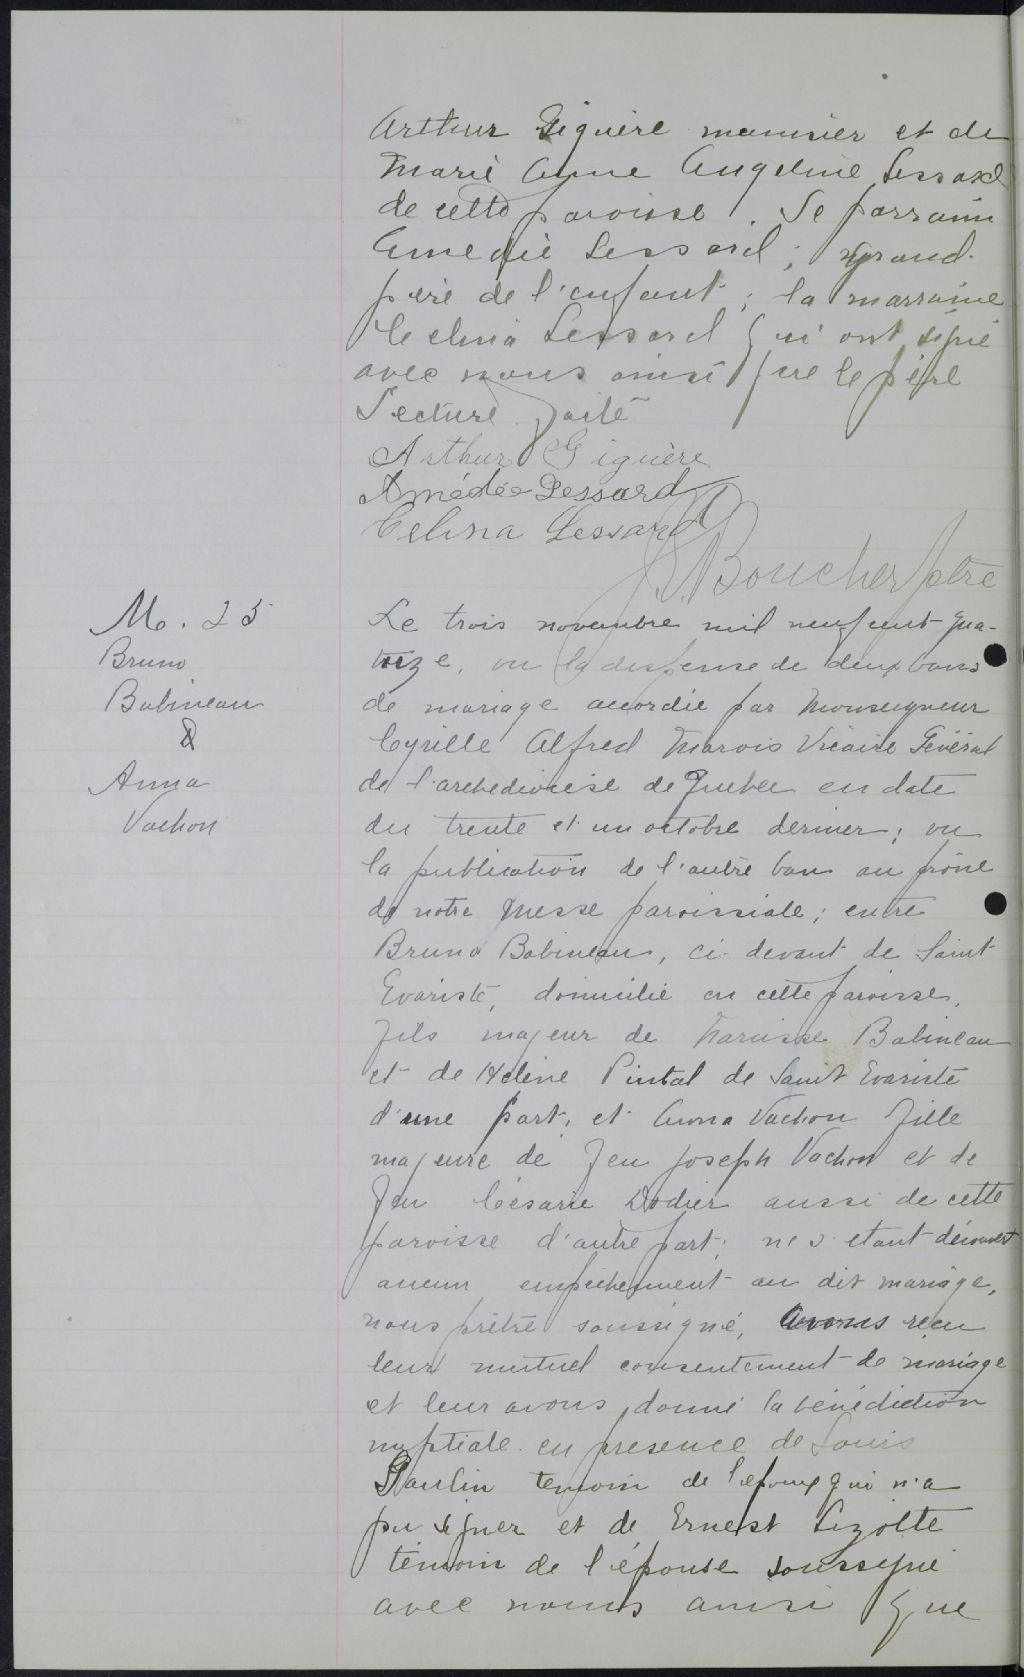 Arthur Giguère meunier et de
Marie Anne Angeline Lessard
de cette paroisse. Le parrain
Amedée Lessard; grand-
père de l'enfant; la marraine
Celina Lessard qui ont signé
avec nous ainsi que le père
Lecture faite
Arthur Giguère
Amédée Lessard
Celina Lessard
J. Boucher ptre
M. 25
Bruno
Babineau
&
Anna
Vachon
Le trois novembre mil neuf cent qua-
torze, vu la dispense de deux bans
de mariage accordée par Monseigneur
Cyrille Alfred Marois Vicaire Général
de l'archediocèse de Quebec en date
du trente et un octobre dernier; vu
la publication de l'autre ban au prône
de notre Messe paroissiale; entre
Bruno Babineau, ci-devant de Saint
Evariste, domicilié en cette paroisse,
fils majeur de Narcisse Babineau
et de Hélène Pintal de Saint Evariste
d'une part, et Anna Vachon fille
majeure de feu Joseph Vachon et de
feu Césarie Dodier aussi de cette
paroisse d'autre part; ne s'étant découvert
aucun empêchement au dit mariage,
nous prêtre soussigné, avons reçu
leur mutuel consentement de mariage
et leur avons donné la bénédiction
nuptiale en présence de Louis
Paulin temoin de l'epoux qui n'a
pu signer et de Ernest Lizotte
témoin de l'épouse soussigné
avec nous ainsi que